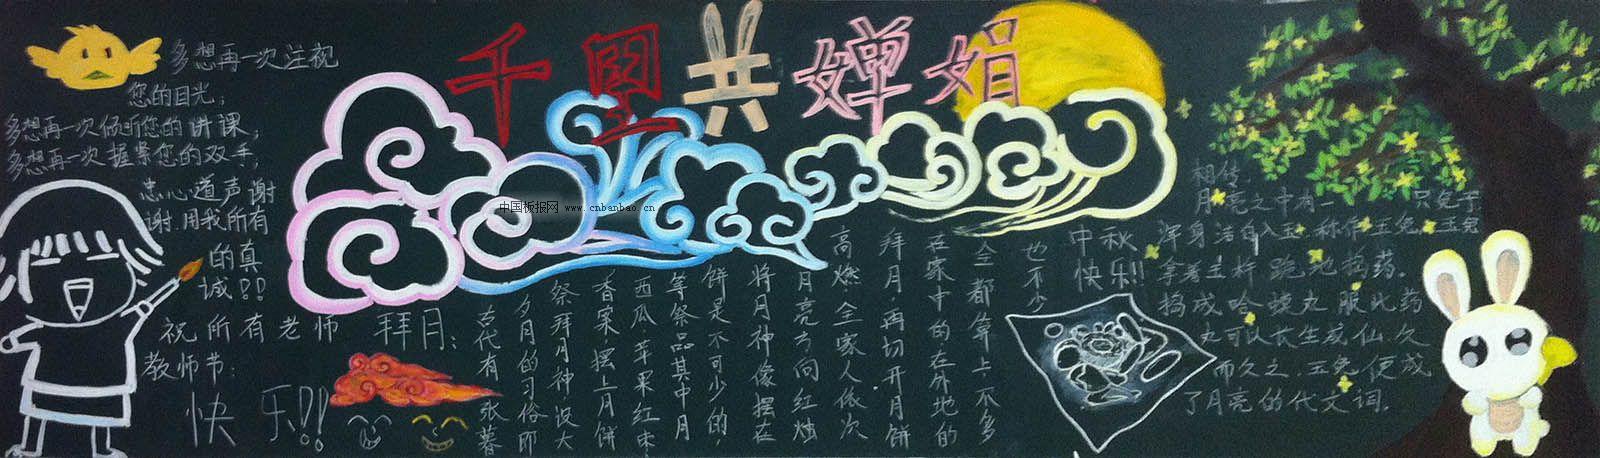 千里共婵娟
多想再一次注视
您的目光；
多想再一次倾听您的讲课；
多想再一次握紧您的双手；
忠心道声谢
谢.用我所有
的真
诚!!
祝所有老师
教师节：
快乐!!
中国板报网 www.cnbanbao.cn
拜月：
古代有秋暮
夕月的习俗即
祭拜月神设大
香案，摆上月饼
西瓜 苹果红枣
等祭品其中月
饼是不可少的，
将月神像摆在
月亮方向红烛
高燃全家人依次
拜月，再切开月饼
在家中的在外地的
全都算上不多
也不少
中秋
快乐!!
相传
月亮之中有一只兔子
浑身洁白如玉.称作玉兔.玉兔
拿着玉杵 跪地捣药.
捣成哈蟆丸 服此药
丸可以长生成仙.久
而久之，玉兔便成
了月亮的代文词.